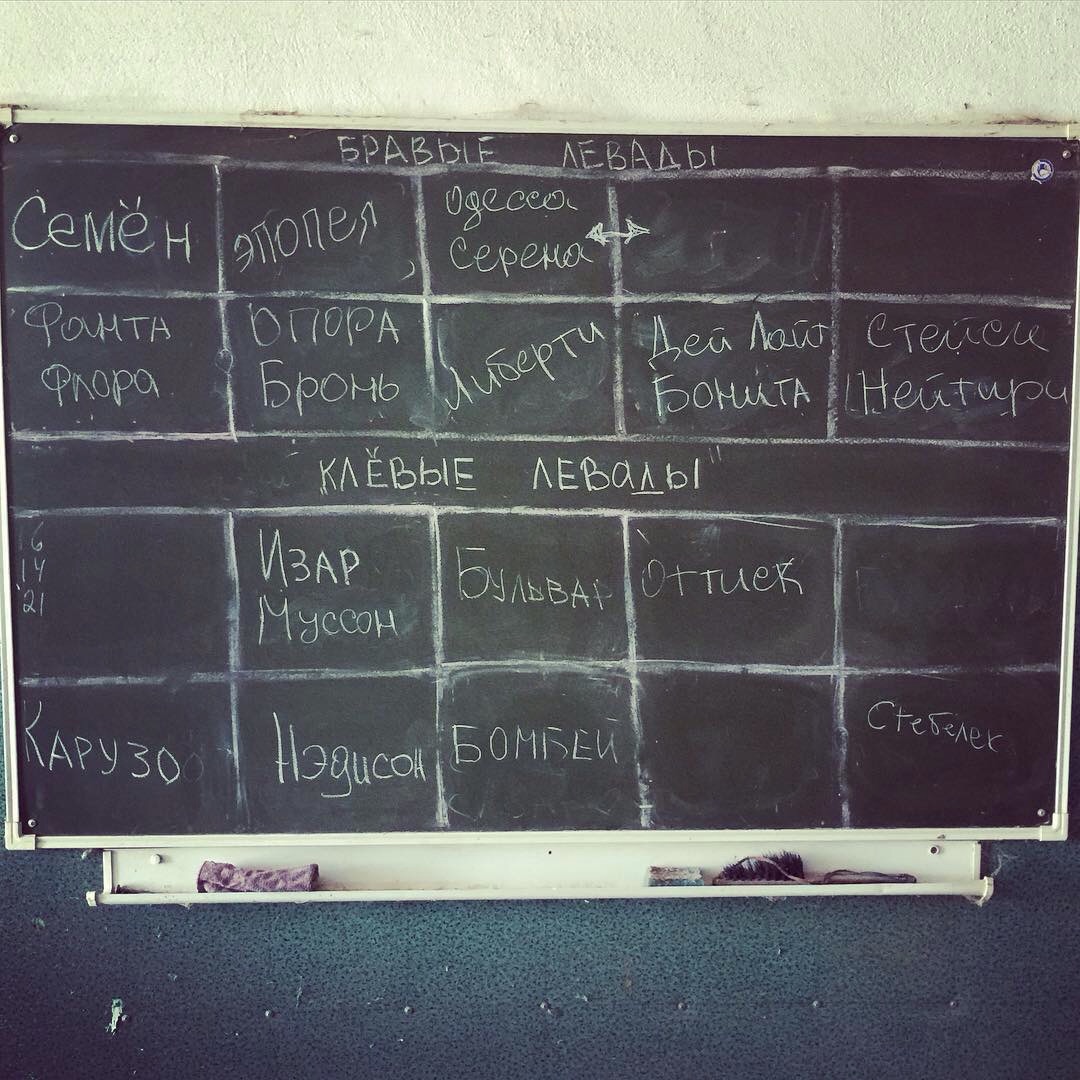 БРАВЫЕ ЛЕВАДЫ
Семён
Эпопея
Одесса
Серена
Фанта
Флора
ОПОРА
Бронь
Либерти
Дей Лайт
БОНИТА
Стейси
Нейтири
"КЛЁВЫЕ ЛЕВАДЫ"
6
14
21
Изар
Муссон
Бульвар
Оттиск
КАРУЗО
Нэдисон
БОМБЕЙ
Стебелек